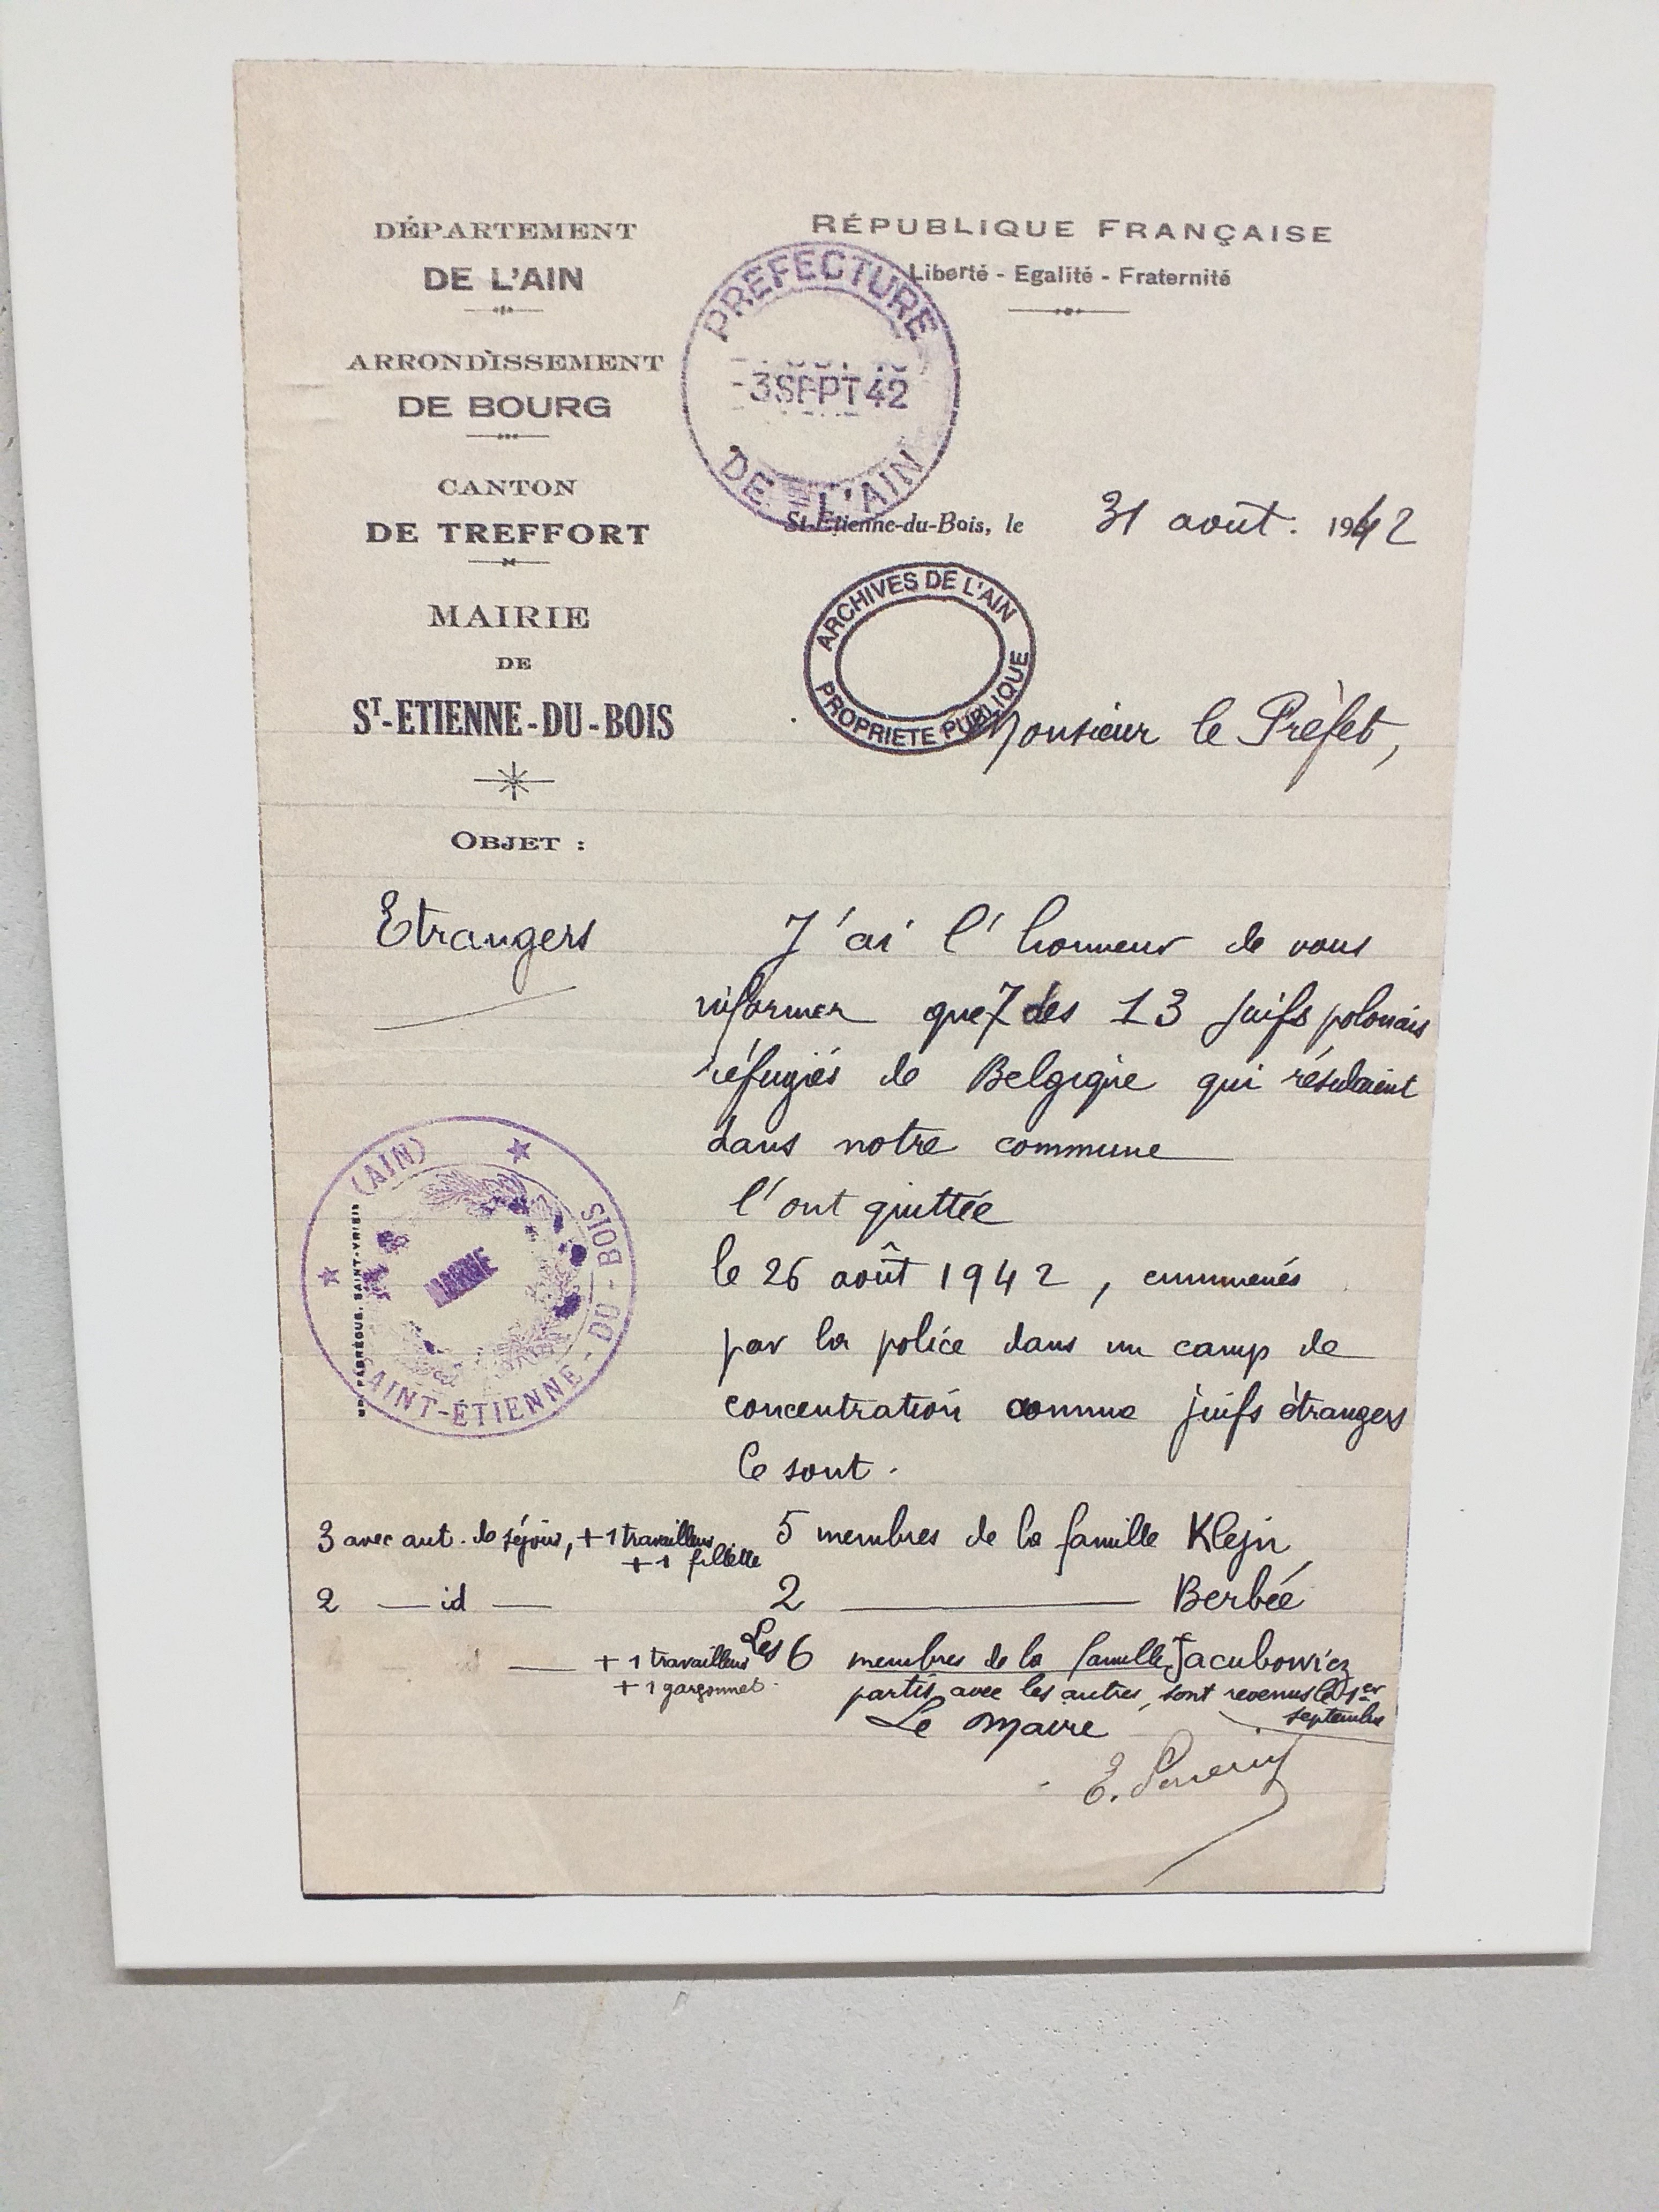 DÉPARTEMENT
DE L'AIN
ARRONDISSEMENT
DE BOURG
CANTON
DE TREFFORT
MAIRIE
DE
ST-ETIENNE-DU-BOIS
OBJET :
Etrangers
RÉPUBLIQUE FRANÇAISE
Liberté - Egalité - Fraternité
PREFECTURE
-3 SEPT 42
DE L'AIN
St-Etienne-du-Bois, le 31 août. 1942
ARCHIVES DE L'AIN
PROPRIETE PUBLIQUE
Monsieur le Préfet,
J'ai l'honneur de vous
informer que 7 des 13 juifs polonais
réfugiés de Belgique qui résidaient
dans notre commune
l'ont quittée
le 26 août 1942, emmenés
par la police dans un camp de
concentration comme juifs étrangers
Ce sont.
(AIN)
SAINT-ÉTIENNE-DU-BOIS
MAIRIE
FABRÈGUE, SAINT-YRIEIX
3 avec aut. de séjour, + 1 travailleur 5 membres de la famille Klejn
+ 1 fillette
2 — id — 2 — Berbée
+ 1 travailleur Les 6 membres de la famille Jacubowicz
+ 1 garçonnet. partis avec les autres, sont revenus le 1er
septembre
Le Maire